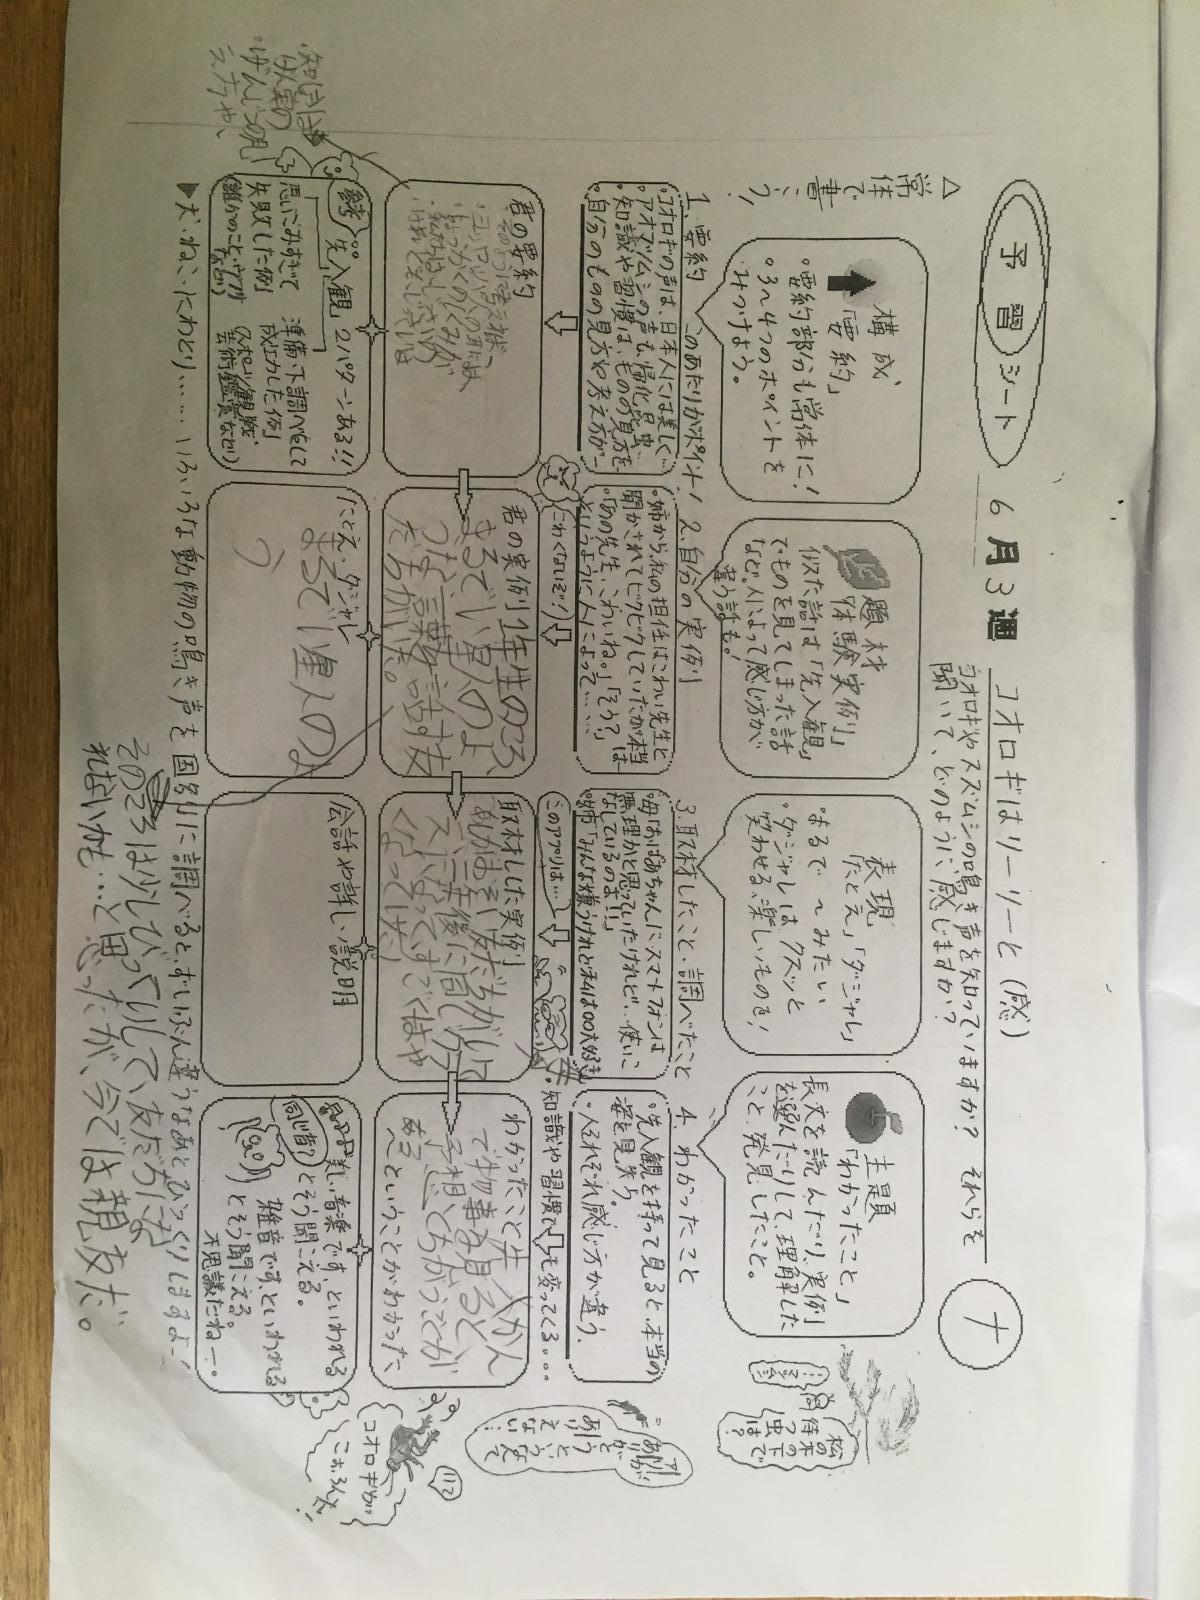 予習シート
6月3週
コオロギはリーリーと(感)
コオロギやスズムシの鳴き声を知っていますか? それらを
聞いて、どのように感じますか?
ナ
△常体で書こう
構成
「要約」
・要約部分も常体に!
・3~4つのポイントを
みつけよう。
題材
「体験実例」
似た話は「先入観」
でものを見てしまった話
など。人によって感じ方が
違う話も!
表現
「たとえ」「ダジャレ」
・まるで~みたい
・ダジャレはクスッと
笑わせる楽しいものを!
主題
「わかったこと」
長文を読んだり、実例
を選んだりして、理解した
こと、発見したこと。
松の木の下で
待つ虫は?
1. 要約 このあたりがポイント!
・コオロギの声は、日本人には美しく…
・アオマツムシの声も、帰化昆虫…
・知識や習慣は、ものの見方を
・自分のものの見方や考え方が…
2. 自分の実例
・姉から、私の担任はこわい先生と
聞かされてビクビクしていたが本当は…
・「あの先生、こわいね。」「そう?」
というように人によって……
こわくないぞ!
3. 取材したこと・調べたこと
・母「おばあちゃんにスマートフォンは
無理かと思っていたけれど…使いこ
なしているのよ!!」
・姉「みんな嫌うけれど私は〇〇大好き
このアプリは…
4. わかったこと
・先入観を持って見ると、本当の
姿を見失う。
・人それぞれ感じ方が違う。
・知識や習慣でも変ってくる…
君の要約
君の実例 1年生のころ、
まるでい星人のよ
うな、言葉を話す友
だちがいた。
取材した実例
わかったこと 先入かん
で物事を見ると、
予想とちがうことが
ある
~ということがわかった、
参考 先入観 2パターンある!!
思いこみすぎて
失敗した例
準備・下調べをして
成功した例
(スポーツ観戦、
芸術鑑賞など)
たとえ・ダジャレ
まるでい星人のよ
う
会話や詳しい説明
美しい音楽です、といわれる
とそう聞こえる。
同じ音?
雑音です、といわれる
とそう聞こえる。
不思議だねー。
コオロギが
こおろんだ!
112
▶犬・ねこ・にわとり……いろいろな動物の鳴き声を国別に調べると、ずいぶん違うなあとびっくりしますよ!
そのころは少しびっくりして友だちにな
れないかも…と思ったが、今では親友だ。